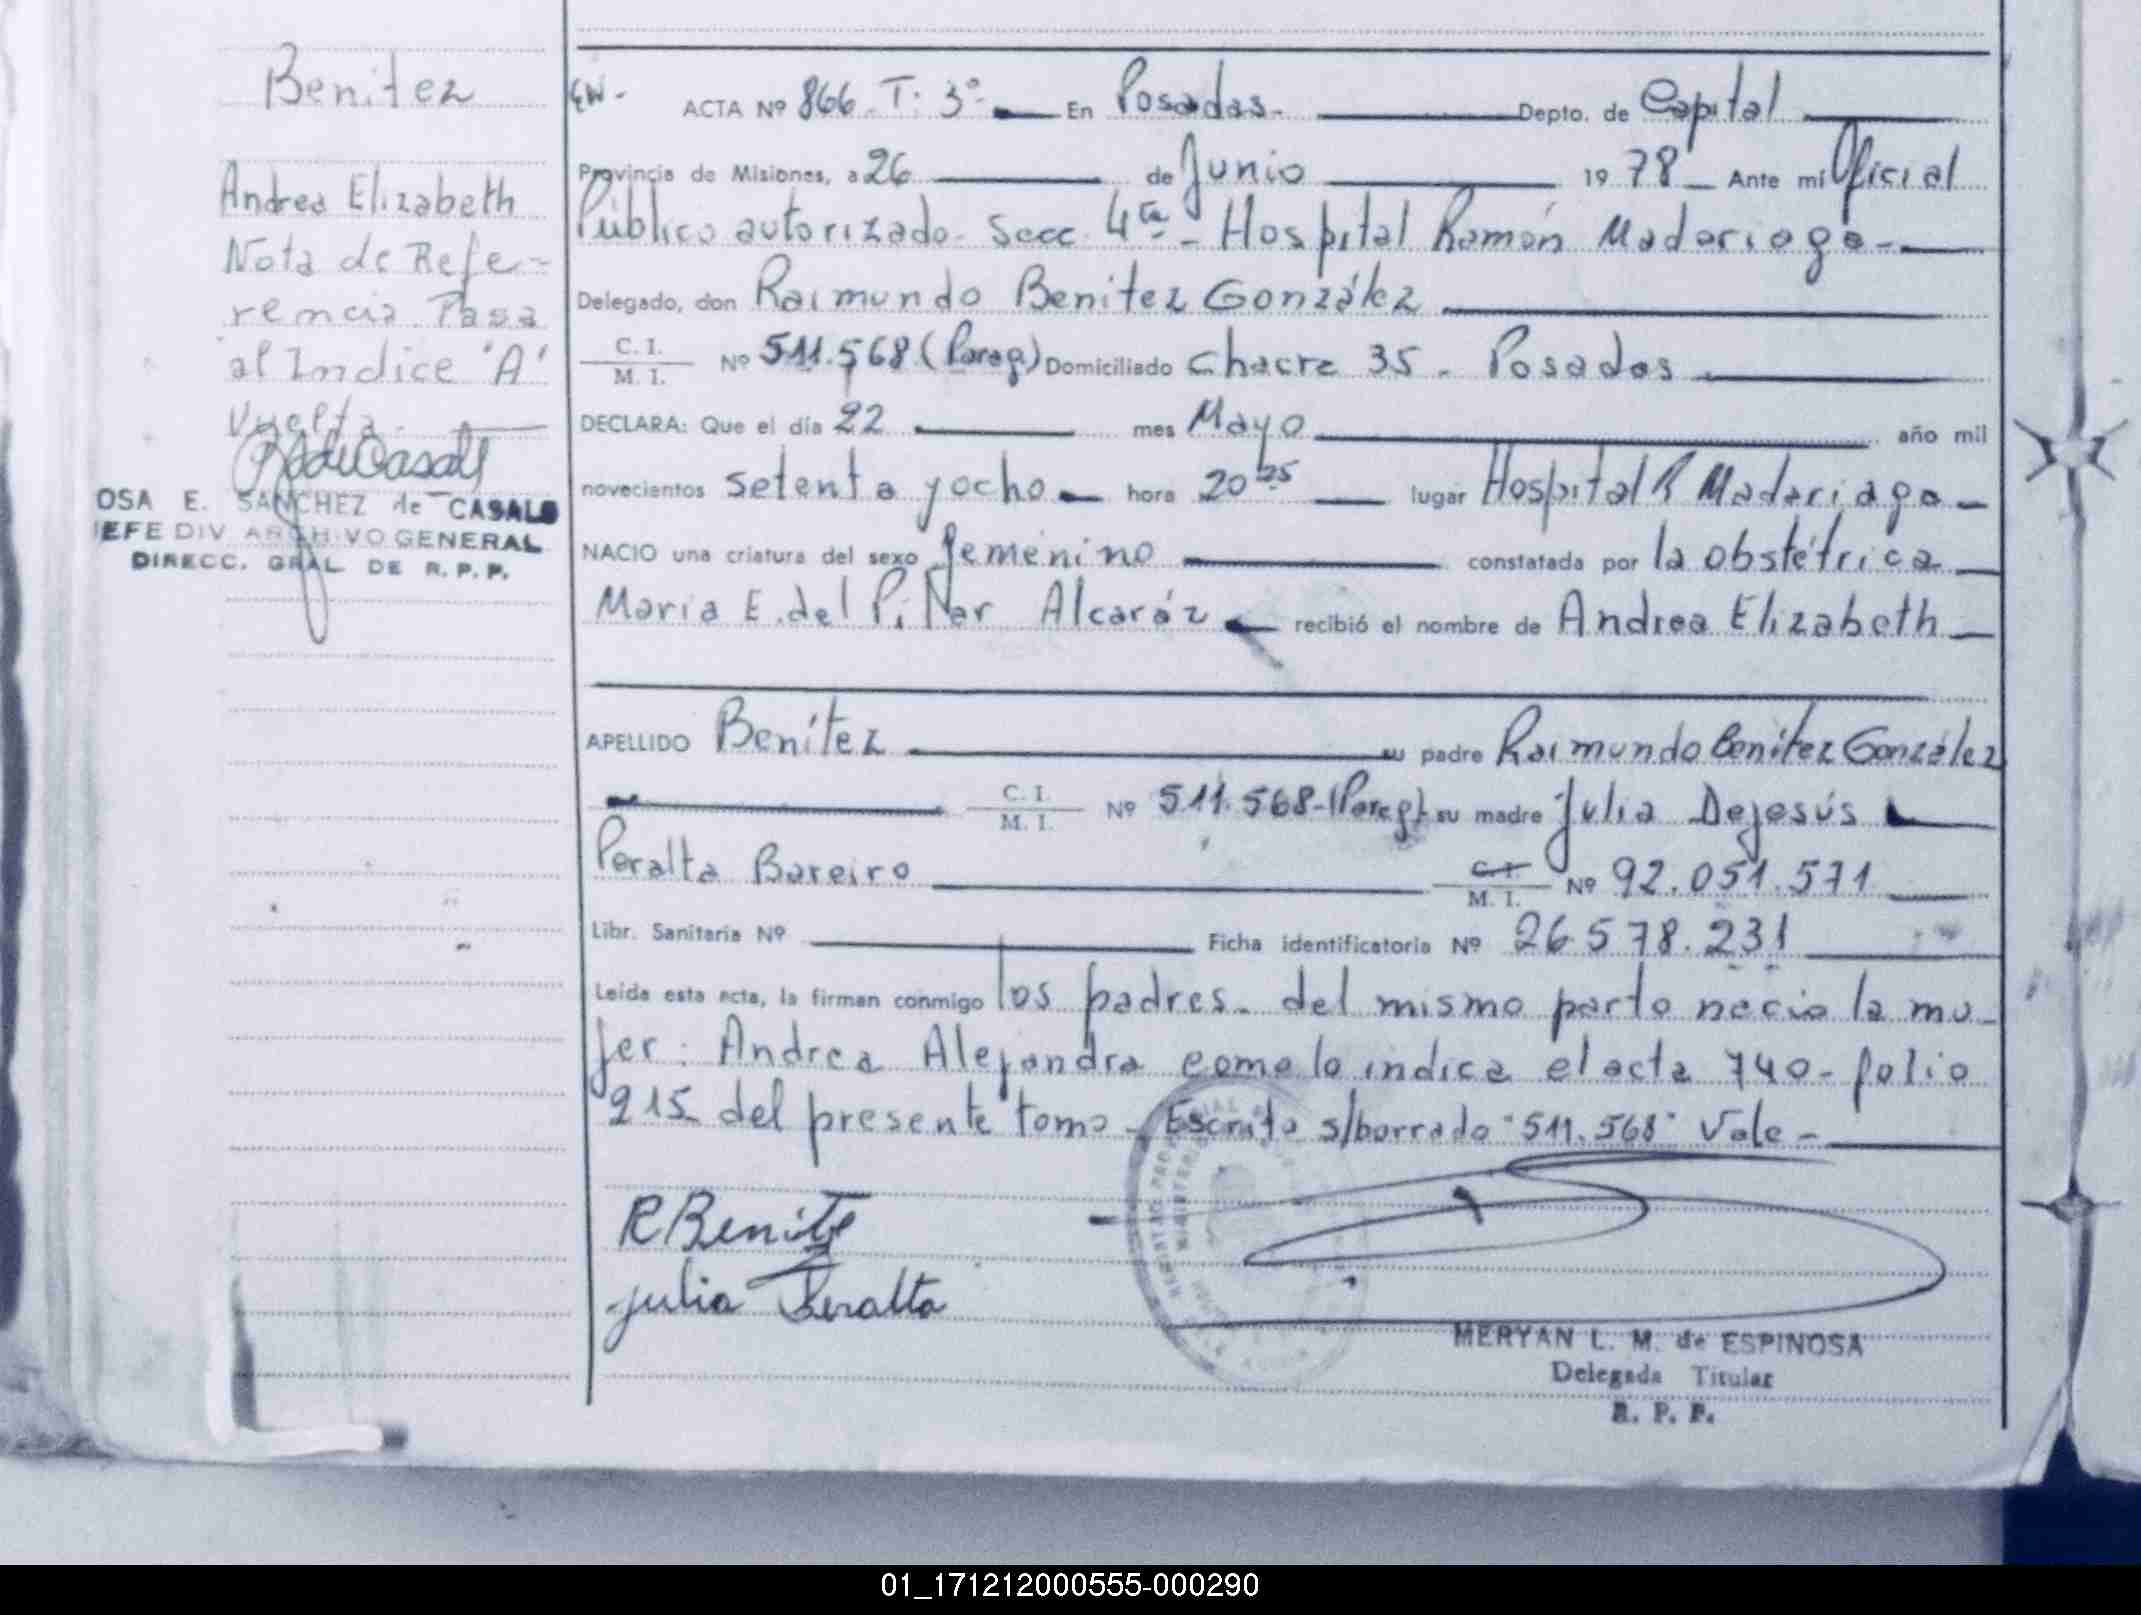 Benítez
Andrea Elizabeth
Nota de Refe-
rencia Pasa
al Indice "A"
Vuelta.
OSA E. SANCHEZ de CASALS
JEFE DIV ARCHIVO GENERAL
DIRECC. GRAL DE R. P. P.
ACTA Nº 866. T: 3º- En Posadas. Depto. de Capital
Provincia de Misiones, a 26 de Junio 19 78 Ante mí Oficial
Público autorizado. Secc. 4ta - Hospital Ramón Madariaga-
Delegado, don Raimundo Benítez González
C. I.
M. I. Nº 511.568 (Parag) Domiciliado Chacra 35. Posadas
DECLARA: Que el día 22 mes Mayo año mil
novecientos setenta y ocho hora 20 25 lugar Hospital R Madariaga
NACIO una criatura del sexo femenino constatada por la obstétrica
María E. del Pilar Alcaráz recibió el nombre de Andrea Elizabeth
APELLIDO Benítez su padre Raimundo Benítez González
C. I.
M. I. Nº 511.568-(Parag) su madre Julia Dejesús
Peralta Bareiro C. I.
M. I. Nº 92.051.571
Libr. Sanitaria Nº Ficha identificatoria Nº 26.578.231
Leída esta acta, la firman conmigo los padres. del mismo parto nació la mu-
jer: Andrea Alejandra como lo indica el acta 740- folio
215 del presente tomo - Escrito s/borrado "511.568" Vale -
R Benitez
Julia Peralta
MERYAN L. M. de ESPINOSA
Delegada Titular
R. P. P.
01_171212000555-000290